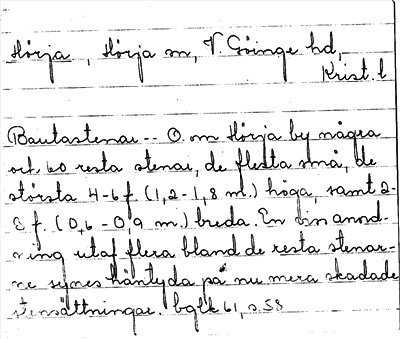 Hörja, Hörja sn, V. Göinge hd,
Krist. l
Bautastenar -- O. om Hörja by några
och 60 resta stenar, de flesta små, de
största 4-6 f. (1,2-1,8 m.) höga, samt 2-
3 f. (0,6-0,9 m.) breda. En viss anord-
ning utaf flera bland de resta stenar-
ne synes häntyda på nu mera skadade
stensättningar. bglk 61, s.58